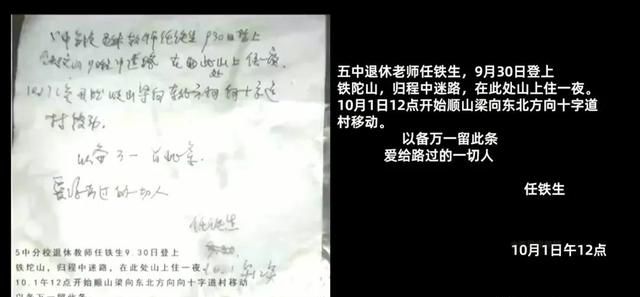 5中分校退休教师任铁生9.30日登上
铁陀山，归程中迷路，在此处山上住一夜。
开始顺山梁向东北方向向十字道
村移动
以备万一留此条。
爱给路过的一切人
任铁生
5中分校退休教师任铁生9.30日登上
铁陀山，归程中迷路，在此处山上住一夜
10.1午12点开始顺山梁向东北方向向十字道村移动
以备万一留此条
五中退休老师任铁生，9月30日登上
铁陀山，归程中迷路，在此处山上住一夜。
10月1日12点开始顺山梁向东北方向十字道
村移动。
以备万一留此条
爱给路过的一切人
任铁生
10月1日午12点